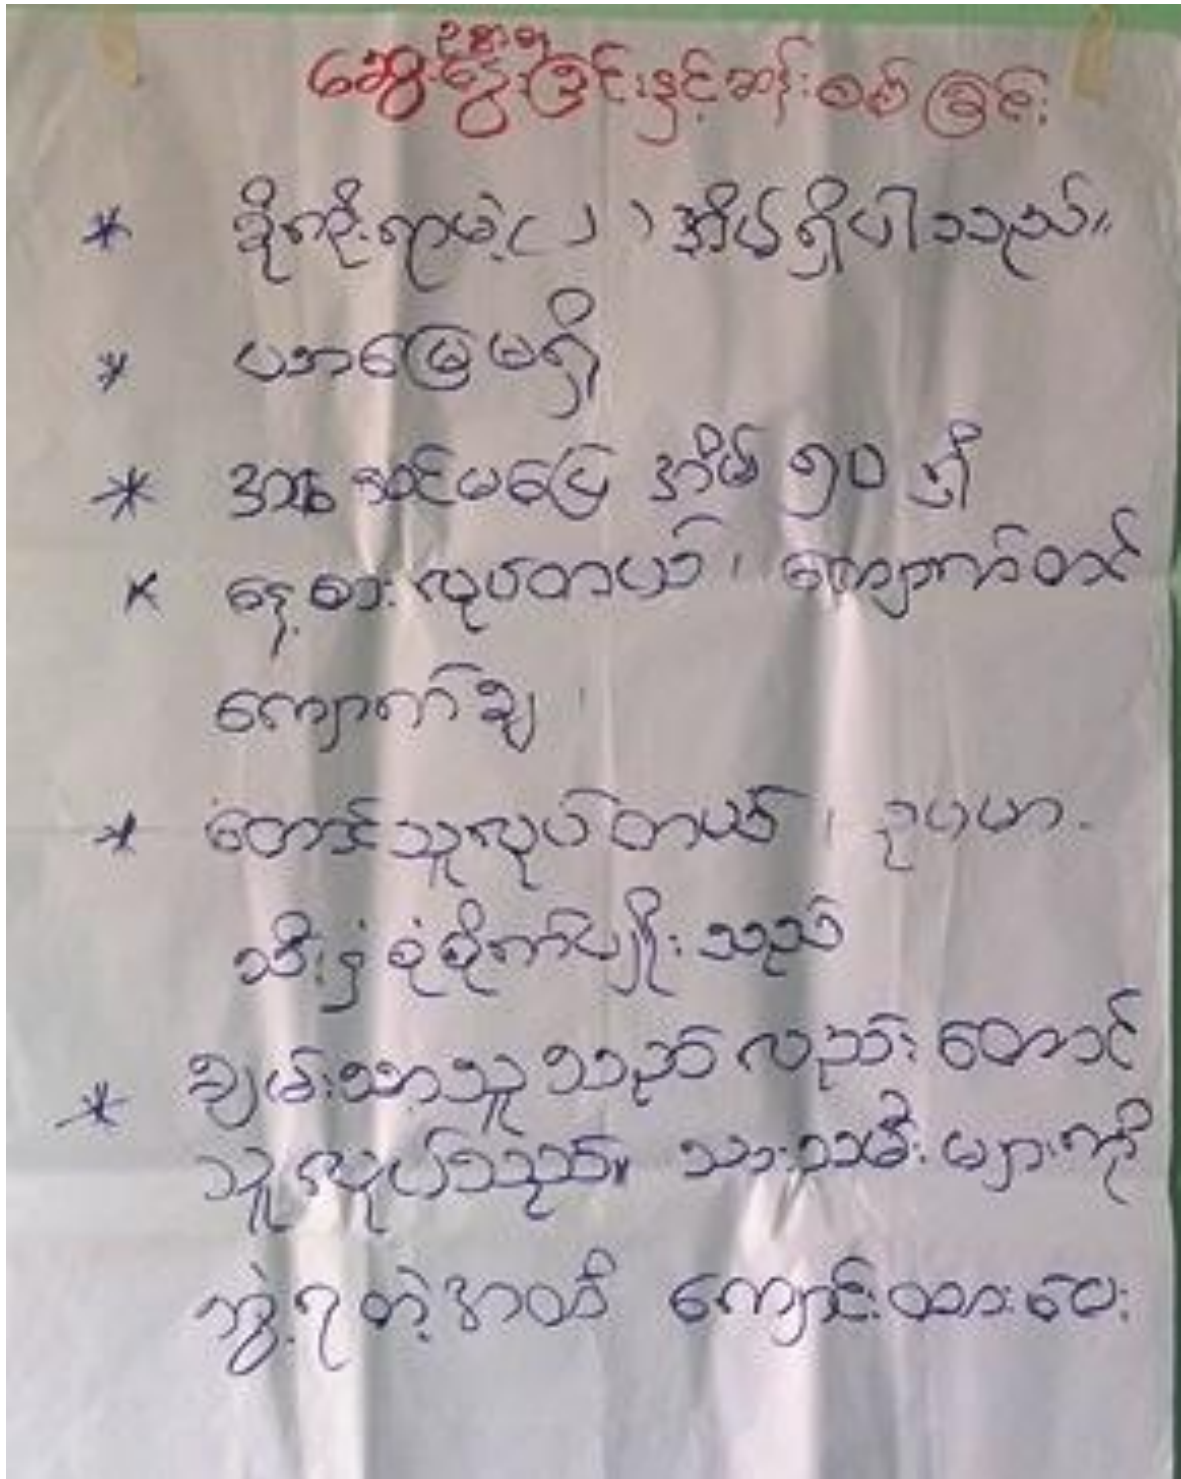 ဥစ္စာဓန
ဆွေးနွေးခြင်းနှင့်ဆန်းစစ်ခြင်း
* ခိုကိုးရာမဲ့ (၂) အိမ်ရှိပါသည်။
* ပဘမြေမရှိ
* အဆင်မပြေ အိမ် ၅၀ ရှိ
* နေ့စားလုပ်တယ်၊ ကျောက်တင်
ကျောက်ချ၊
* တောင်သူလုပ်တယ်၊ ဥပမာ-
သီးနှံစုံစိုက်ပျိုးသည်
* ချမ်းသာသူသည်လည်း တောင်
သူလုပ်သည်။ သားသမီးများကို
ဘွဲ့ရတဲ့အထိ ကျောင်းထားပေး